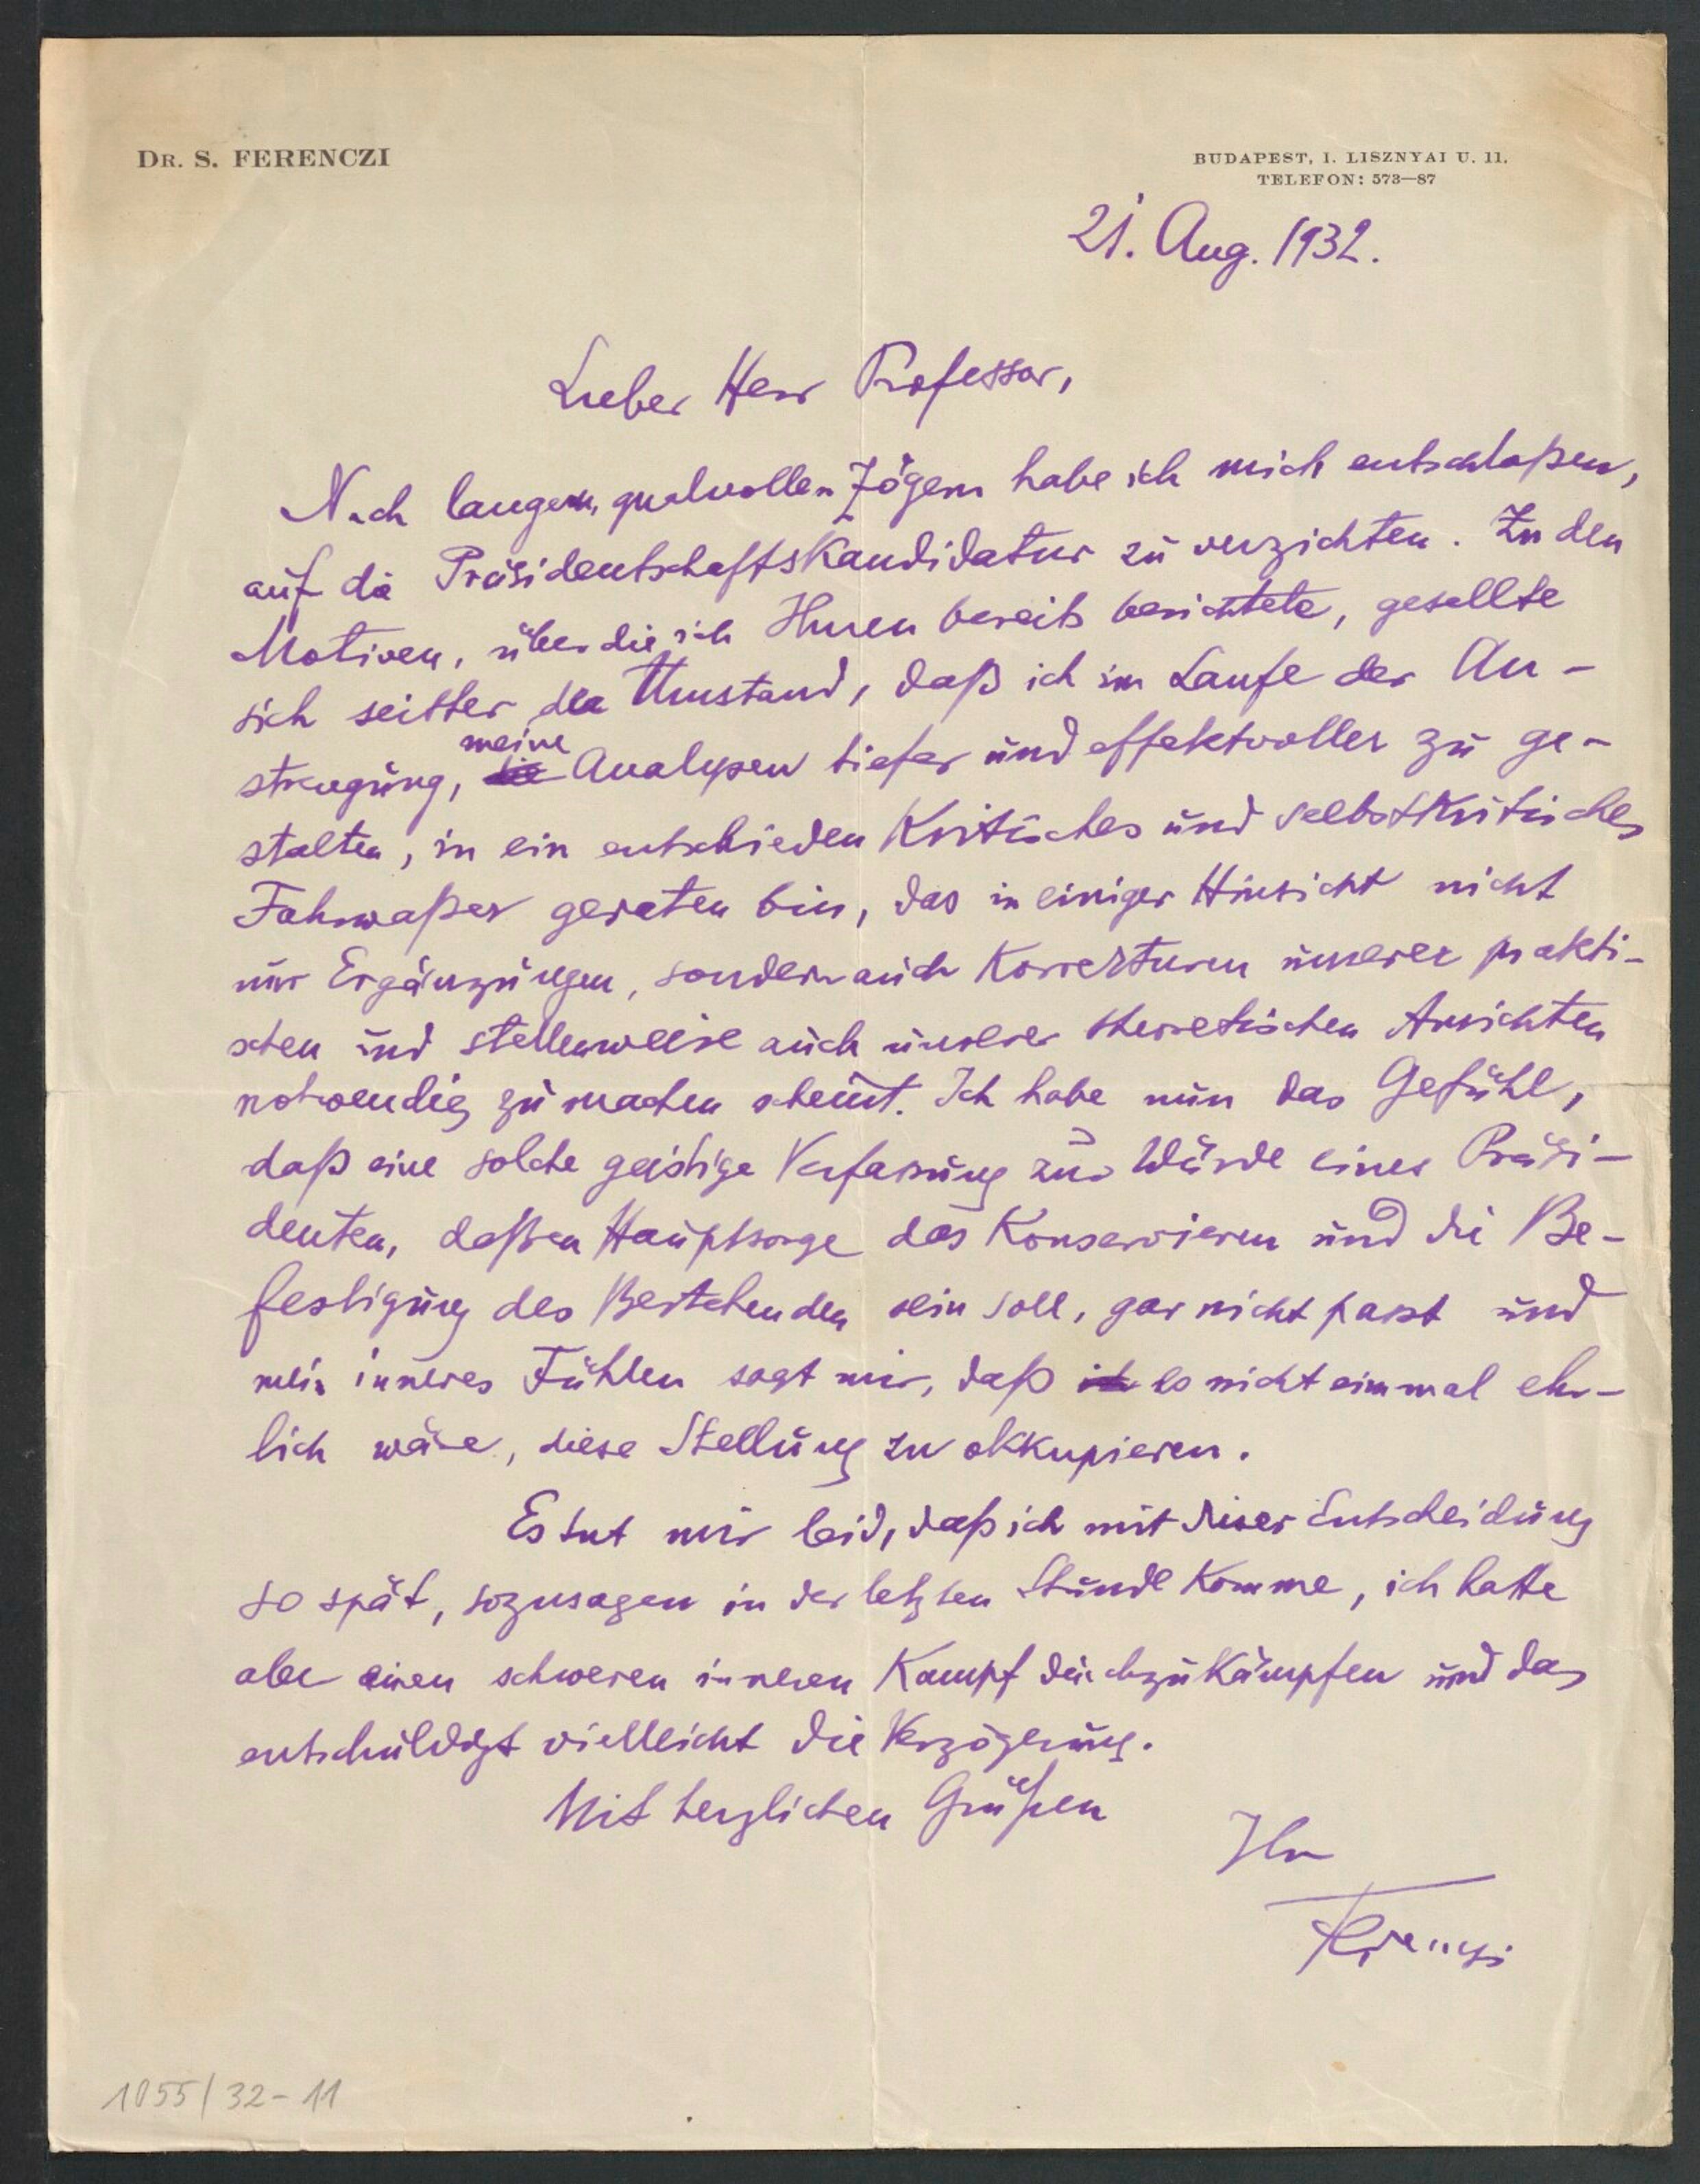 DR. S. FERENCZI
BUDAPEST, I. LISZNYAI U. 11.
TELEFON: 573—87
21. Aug. 1932.
Lieber Herr Professor,
Nach langem, qualvollen Zögern habe ich mich entschloßen,
auf die Präsidentschaftskandidatur zu verzichten. Zu den
Motiven, über die ich Ihnen bereits berichtete, gesellte
sich seither der Umstand, daß ich im Laufe der An-
strengung, die meine Analysen tiefer und effektvoller zu ge-
stalten, in ein entschieden kritisches und selbstkritisches
Fahrwaßer geraten bin, das in einiger Hinsicht nicht
nur Ergänzungen, sondern auch Korrekturen unserer prakti-
schen und stellenweise auch unserer theoretischen Ansichten
notwendig zu machen scheint. Ich habe nun das Gefühl,
daß eine solche geistige Verfassung zur Würde eines Präsi-
denten, deßen Hauptsorge das Konservieren und die Be-
festigung des Bestehenden sein soll, gar nicht passt und
mein inneres Fühlen sagt mir, daß ich es nicht einmal ehr-
lich wäre, diese Stellung zu okkupieren.
Es tut mir leid, daß ich mit dieser Entscheidung
so spät, sozusagen in der letzten Stunde komme, ich hatte
aber einen schweren inneren Kampf durchzukämpfen und das
entschuldigt vielleicht die Verzögerung.
Mit herzlichen Grüßen
Ihr
Ferenczi
1055/32-11